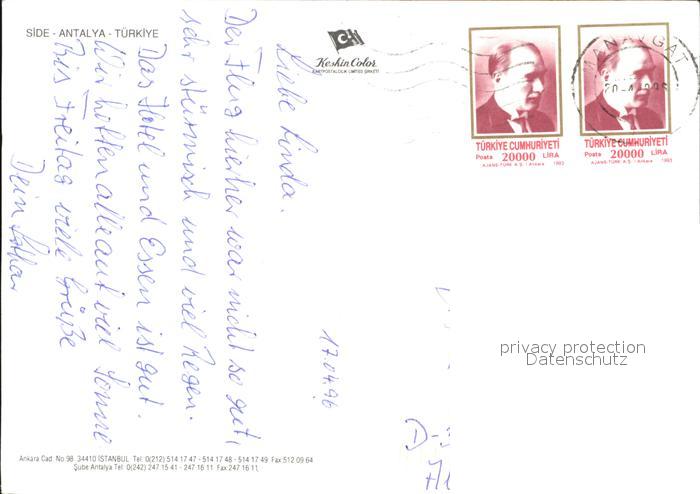 SIDE - ANTALYA - TÜRKİYE
Keskin Color
KARTPOSTALCILIK LIMITED ŞİRKETİ
MANAVGAT
TÜRKİYE CUMHURİYETİ
Posta 20000 LİRA
AJANS-TÜRK A.Ş. / Ankara 1993
TÜRKİYE CUMHURİYETİ
Posta 20000 LİRA
AJANS-TÜRK A.Ş. / Ankara 1993
17.04.96
Liebe Linda.
Der Flug hierher war nicht so gut,
sehr stürmisch und viel Regen.
Das Hotel und Essen ist gut.
Wir hoffen alle auf viel Sonne
Bis Freitag viele Grüße
Dein Lothar
privacy protection
Datenschutz
D-
Ankara Cad. No.98. 34410 İSTANBUL Tel: 0(212) 514 17 47 - 514 17 48 - 514 17 49 Fax:512 09 64
Şube Antalya Tel: 0 (242) 247 15 41 - 247 16 11 Fax:247 16 11